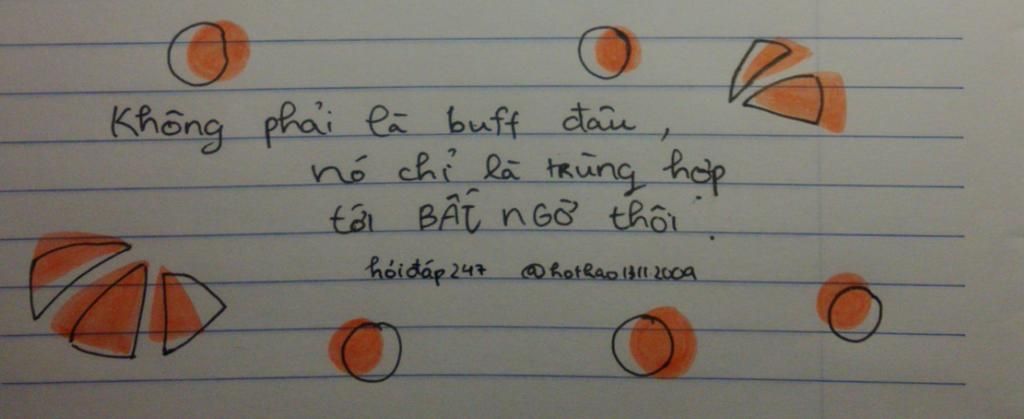 Không phải là buff đâu,
nó chỉ là trùng hợp
tới BẤT NGỜ thôi.
hỏiđáp247 @hothao1311.2009